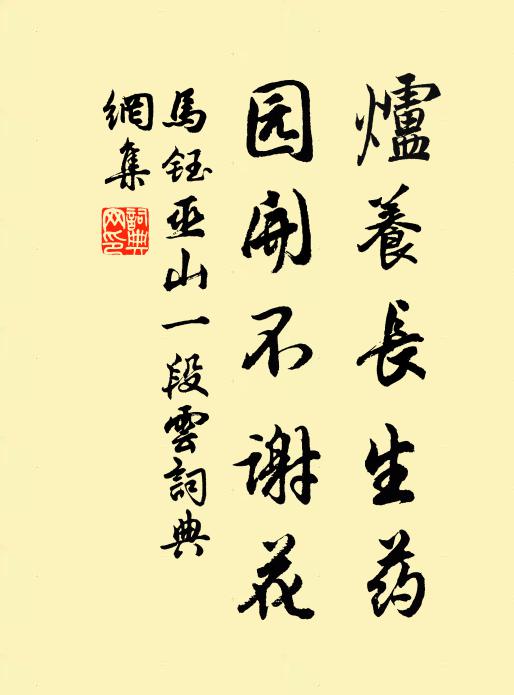 爐養長生药
园開不谢花
馬鈺巫山一段雲詞典
網集
詞典
网印